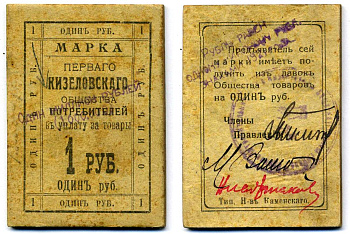 1 ОДИНЪ РУБ. 1
МАРКА
ПЕРВАГО
КИЗЕЛОВСКАГО
ОБЩЕСТВА
ПОТРЕБИТЕЛЕЙ
въ уплату за товары
1 РУБ.
ОДИНЪ руб.
ОДИНЪ РУБ.
ОДИНЪ РУБ.
1 ОДИНЪ РУБ. 1
Предъявитель сей
марки имѣетъ по-
лучить изъ лавокъ
Общества товаровъ
на ОДИНЪ руб.
Члены
Правленія
Тип. Н-въ Каменскаго.